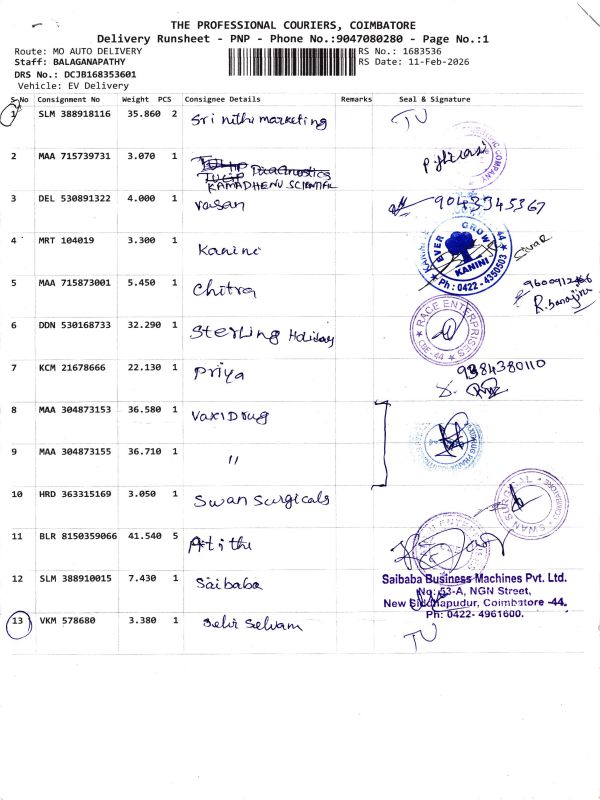 THE PROFESSIONAL COURIERS, COIMBATORE
Delivery Runsheet - PNP - Phone No.:9047080280 - Page No.:1
Route: MO AUTO DELIVERY RS No.: 1683536
Staff: BALAGANAPATHY RS Date: 11-Feb-2026
DRS No.: DCJB168353601
Vehicle: EV Delivery
S.No Consignment No Weight PCS Consignee Details Remarks Seal & Signature
1 SLM 388918116 35.860 2 Sri nithi marketing TU
2 MAA 715739731 3.070 1 Tulip Diagnostics
KAMADHENU SCIENTIFIC
3 DEL 530891322 4.000 1 Vasan 9043545367
4 MRT 104019 3.300 1 Kanini
EVER GROW
KANINI
Ph : 0422 - 4350503
5 MAA 715873001 5.450 1 Chitra
6 DDN 530168733 32.290 1 Sterling Holiday
RACE ENTERPRISES
CBE-44
7 KCM 21678666 22.130 1 Priya 9384380110
8 MAA 304873153 36.580 1 Vaxi Drug
9 MAA 304873155 36.710 1 "
10 HRD 363315169 3.050 1 Swan Surgicals
SWAN SURGICAL
11 BLR 8150359066 41.540 5 Atithi
12 SLM 388910015 7.430 1 Saibaba
Saibaba Business Machines Pvt. Ltd.
No: 53-A, NGN Street,
New Siddhapudur, Coimbatore -44.
Ph: 0422- 4961600.
13 VKM 578680 3.380 1 Selvi Selvam TU